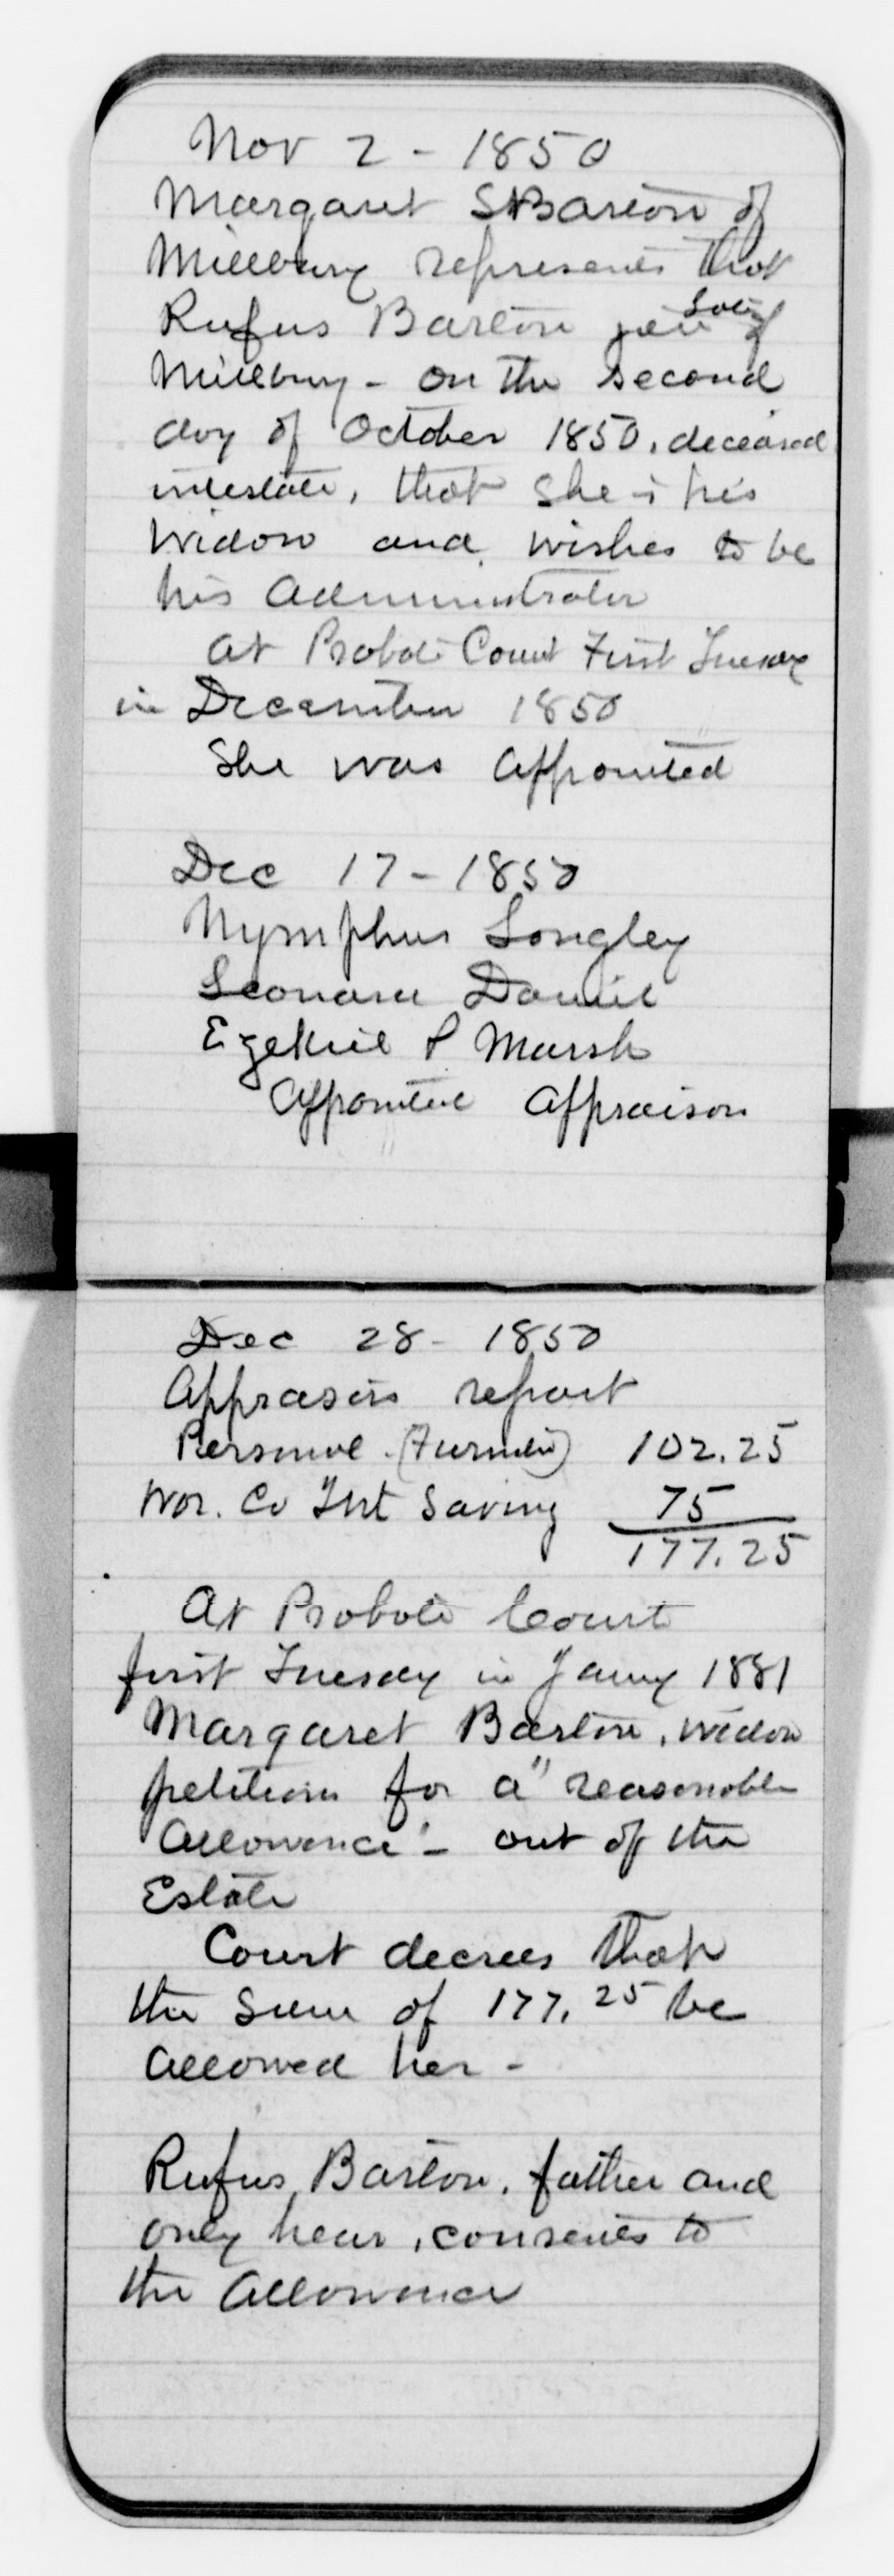 Nov 2 - 1850
Margaret S Barton of
Millbury represents that
Rufus Barton jun late of
Millbury - on the second
day of October 1850, deceased
intestate, that she is his
Widow and wishes to be
his Administrator
At Probate Court First Tuesday
in December 1850
She was appointed
Dec 17 - 1850
Nymphus Longley
Leonard Daniel
Ezekiel P Marsh
appointed appraisors
Dec 28 - 1850
Apprasers report
Personal (Furniture) 102.25
Wor. Co Inst Saving 75
177.25
At Probate Court
first Tuesday in Jany 1881
Margaret Barton, widow
petitions for a "reasonable
Allowance" - out of the
Estate
Court decrees that
the Sum of 177.25 be
allowed her -
Rufus Barton, father and
only hear, consents to
the Allowance